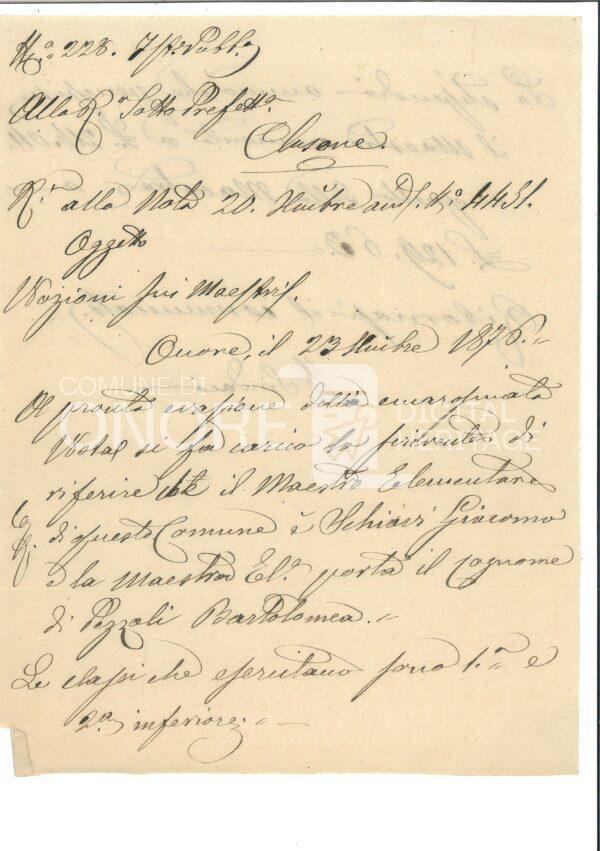 N.° 228. Is. Pubb.
Alla R.a Sotto Prefett.a
Clusone.
R. alla Nota 20. 9mbre and. N.° 4431.
Oggetto
Nozioni sui Maestri.
Onore, il 23 9mbre 1876.
A pronta evasione della emarginata
Nota si fa carico lo scrivente di
riferire che il Maestro Elementare
di questo Comune è Schiavi Giacomo
e la Maestra El.e porta il cognome
di Pezzoli Bartolomea.
Le classi che esercitano sono 1.a e
2.a inferiore.
COMUNE DI
ONORE
DIGITAL
HERITAGE